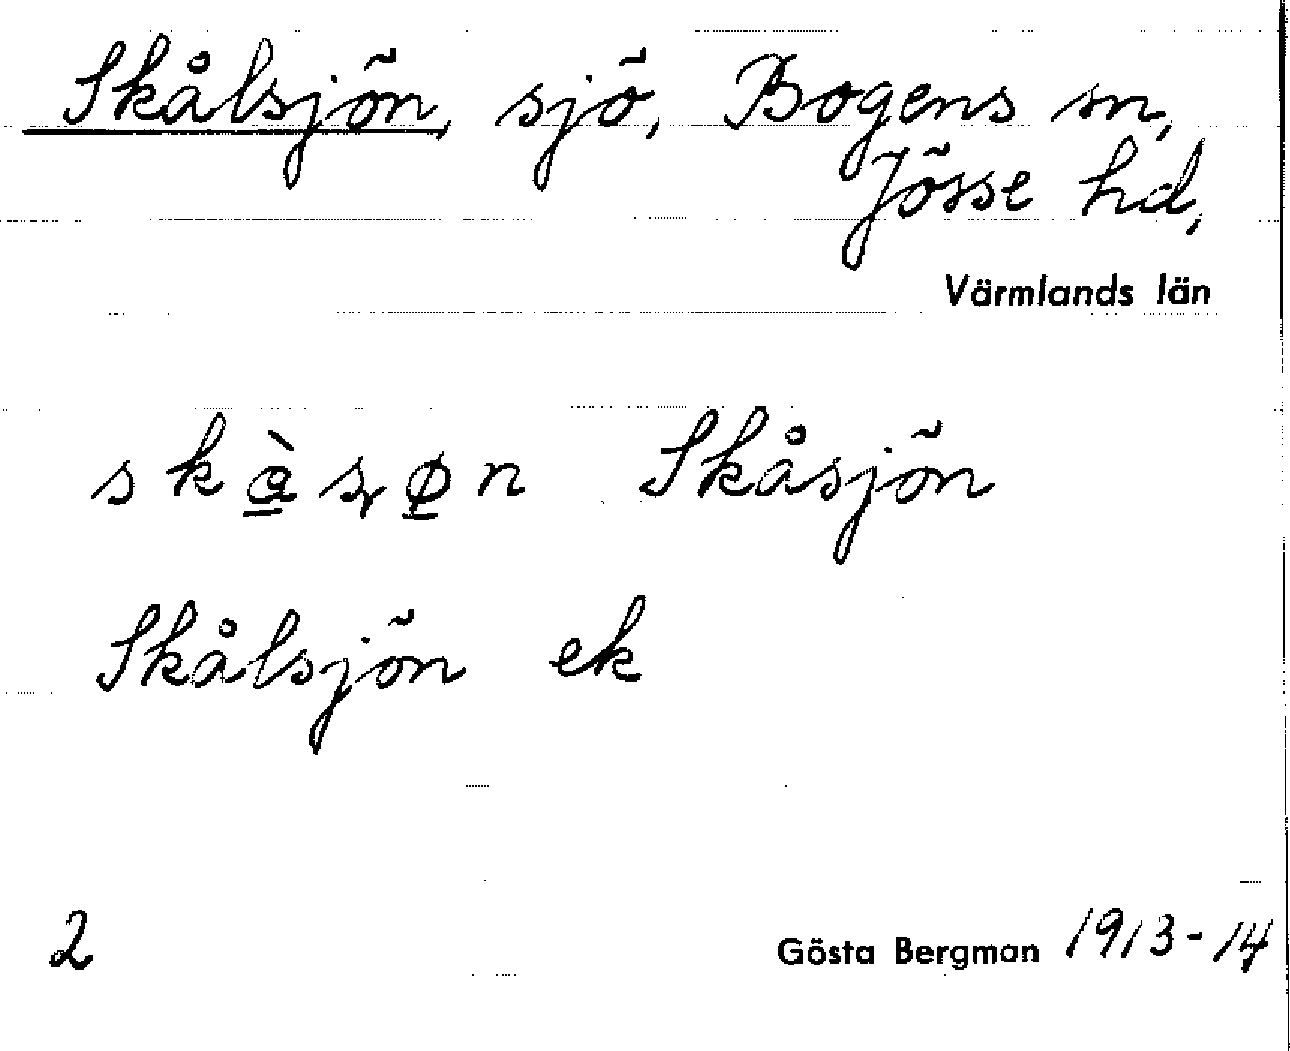 Skålsjön, sjö, Bogens sn,
Jösse hd,
Värmlands län
Skåsjön
Skålsjön ek
2 Gösta Bergman 1913-14